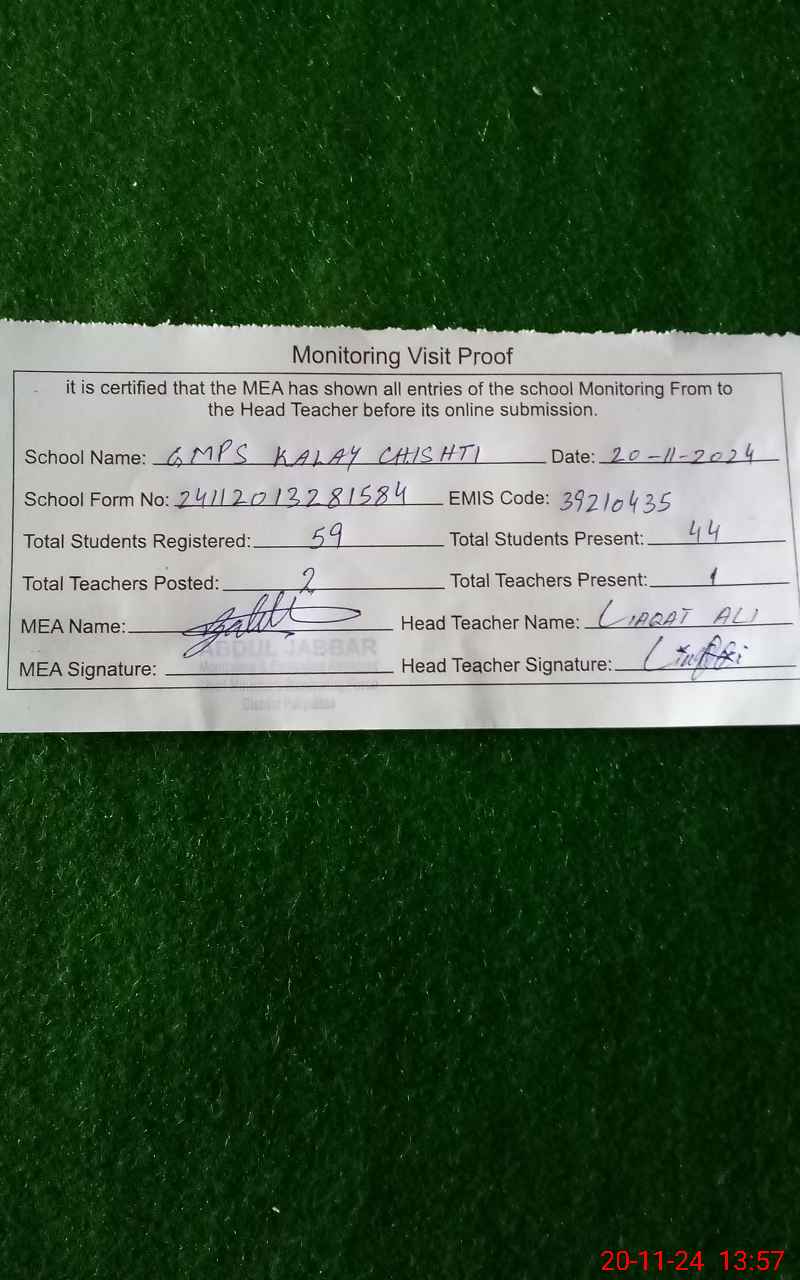 Monitoring Visit Proof
it is certified that the MEA has shown all entries of the school Monitoring From to
the Head Teacher before its online submission.
School Name: GMPS KALAY CHISHTI Date: 20-11-2024
School Form No: 24112013281584 EMIS Code: 39210435
Total Students Registered: 59 Total Students Present: 44
Total Teachers Posted: 2 Total Teachers Present: 1
MEA Name: Head Teacher Name: LIAQAT ALI
ABDUL JABBAR
MEA Signature: Head Teacher Signature:
District Pakpattan
20-11-24 13:57